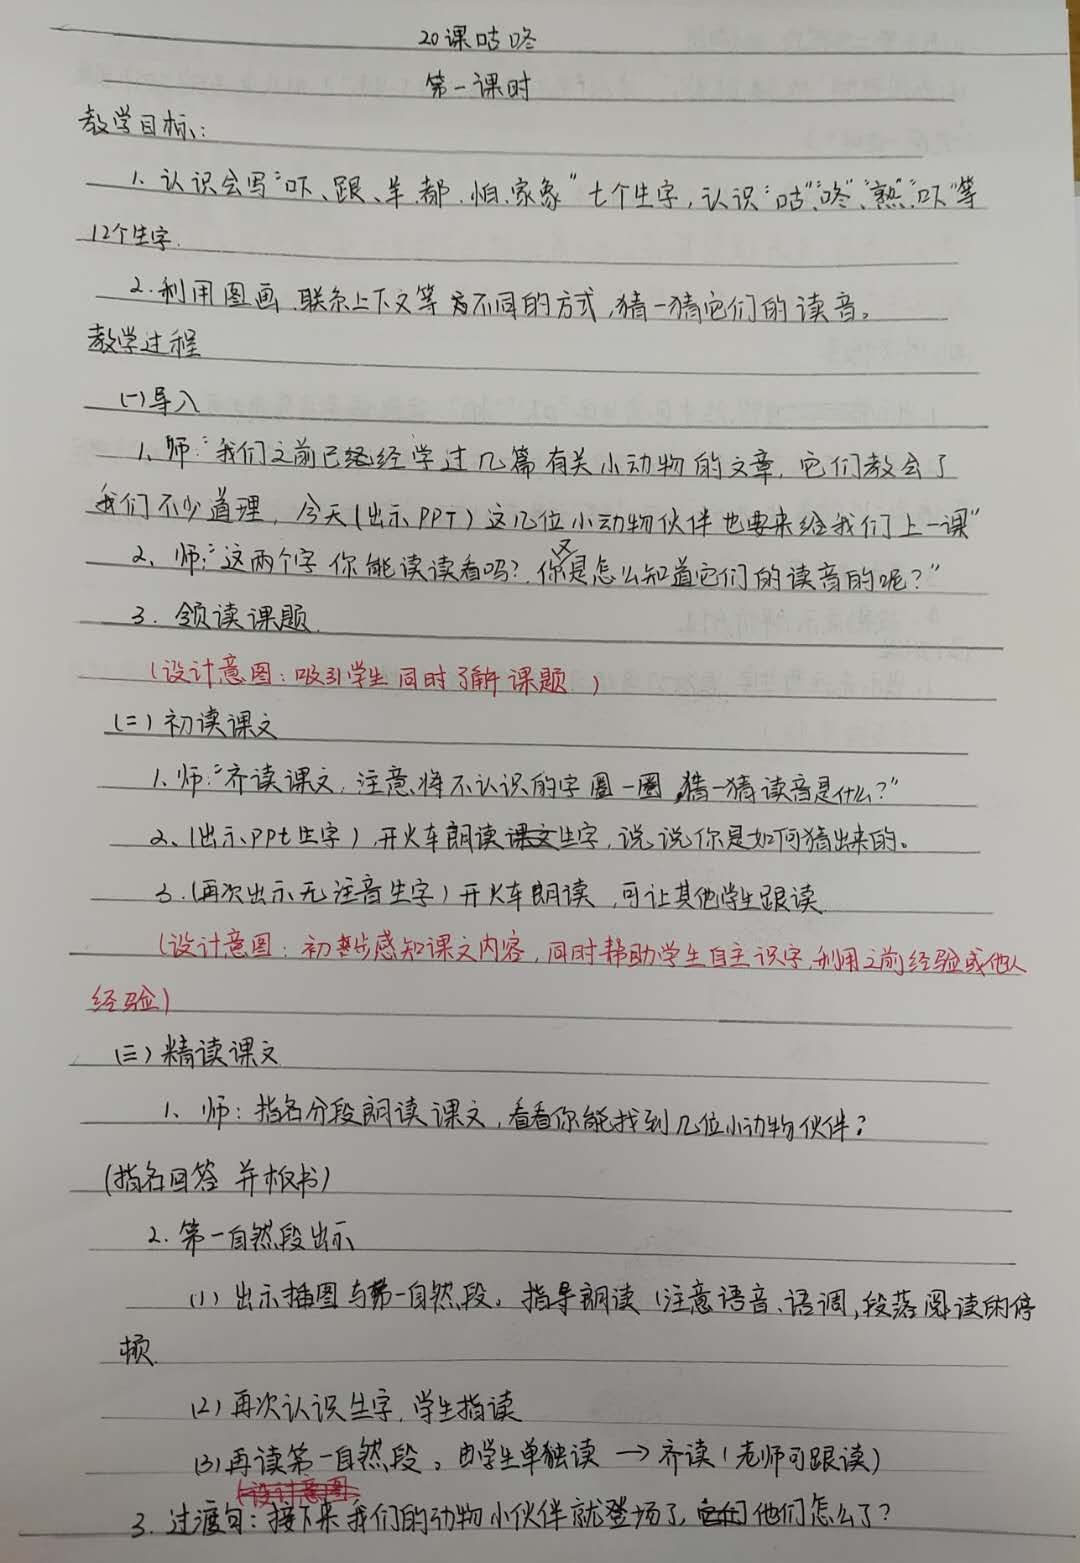 20课咕咚
第一课时
教学目标:
1. 认识会写“吓、跟、羊、都、怕、家象”七个生字,认识“咕”“咚”、“熟”、“吓”等
12个生字.
2.利用图画、联系上下文等不同的方式,猜一猜它们的读音。
教学过程
(一)导入
1、师:“我们之前已经学过几篇有关小动物的文章,它们教会了
我们不少道理,今天(出示PPT)这几位小动物伙伴也要来给我们上一课”
2、师:“这两个字你能读读看吗?你又是怎么知道它们的读音的呢?”
3. 领读课题.
(设计意图:吸引学生同时了解课题)
(二)初读课文
1.师:“齐读课文,注意将不认识的字圈一圈,猜一猜读音是什么?”
2、(出示ppt生字),开火车朗读课文生字,说说你是如何猜出来的。
3.(再次出示无注音生字)开火车朗读,可让其他学生跟读.
(设计意图:初步感知课文内容,同时帮助学生自主识字,利用之前经验或他人
经验)
(三)精读课文
1、师:指名分段朗读课文,看看你能找到几位小动物伙伴?
(指名回答 并板书)
2. 第一自然段出示
(1) 出示插图与第一自然段。指导朗读(注意语音、语调,段落阅读的停
顿.
(2)再次认识生字,学生指读
(3)再读第一自然段。由学生单独读→齐读(老师可跟读)
(设计意图
3. 过渡句:接下来我们的动物小伙伴就登场了,它们他们怎么了?